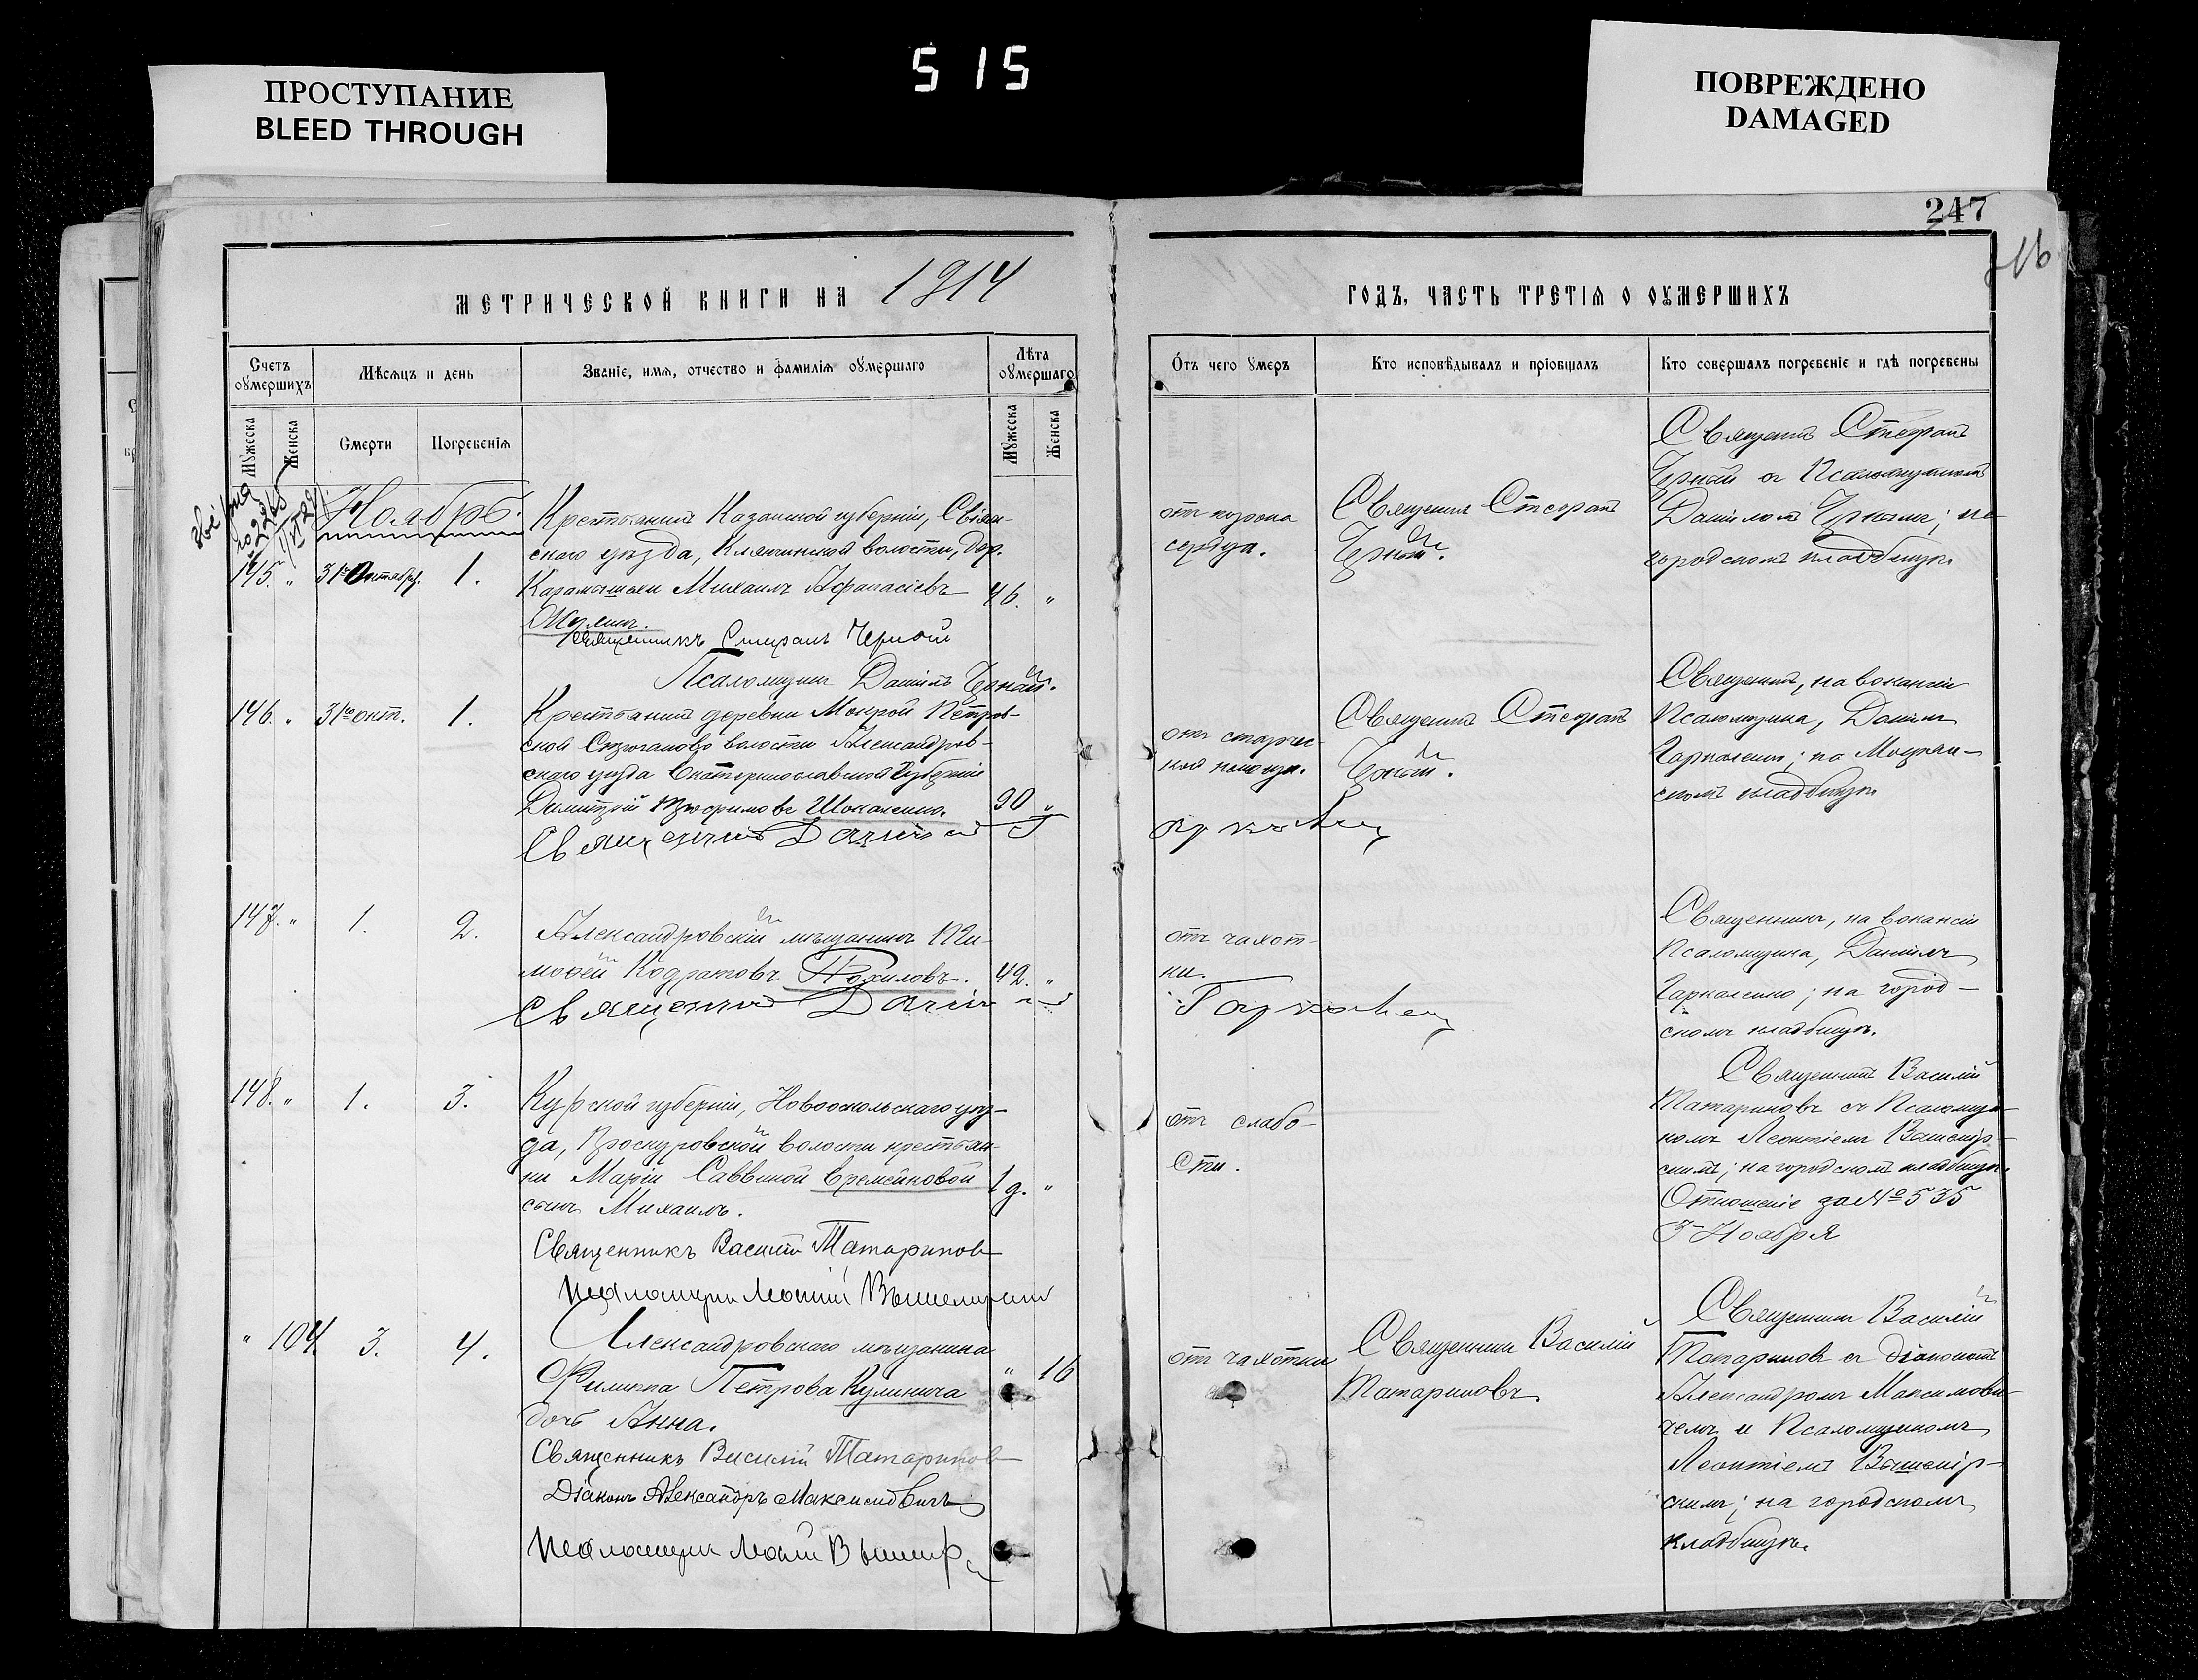 5 15
ПРОСТУПАНИЕ
BLEED THROUGH
ПОВРЕЖДЕНО
DAMAGED
247
МЕТРИЧЕСКОЙ КНИГИ НА 1914
ГОДЪ, ЧАСТЬ ТРЕТІЯ О ОУМЕРШИХЪ
Счетъ оумершихъ
Мѣсяцъ и день
Званіе, имя, отчество и фамилія оумершаго
Лѣта оумершаго
Мужеска
Женска
Смерти
Погребенія
Мужеска
Женска
Отъ чего умеръ
Кто исповѣдывалъ и пріобщалъ
Кто совершалъ погребеніе и гдѣ погребены
Ноябрь.
145. " 31го Октября. 1.
Крестьянинъ Казанской губерніи, Свіяж-
скаго уѣзда, Ключинской волости, дер.
Михаилъ Афанасіевъ
46. "
Священникъ Стефанъ Черной
Псаломщикъ Даніилъ Черный.
отъ порока
сердца.
Священникъ Стефанъ
Черный.
Священникъ Стефанъ
Черный съ Псаломщикомъ
Даніиломъ Чернымъ; на
городскомъ кладбищѣ.
146. " 31го окт. 1.
Крестьянинъ деревни Мокрой Петров-
ской волости Александров-
скаго уѣзда Екатеринославской губерніи
Димитрій Трофимовъ Шокаленко.
90 "
Священникъ Даніилъ Гаркавенко
отъ старчес-
кой немощи.
Священникъ Стефанъ
Черный.
Священникъ, на вакансіи
Псаломщика, Даніилъ
на
скомъ кладбищѣ.
147. " 1. 2.
Александровскій мѣщанинъ Ти-
моѳей Кодратовъ Похиловъ.
42. "
Священникъ Даніилъ
отъ чахот-
ки.
Священникъ, на вакансіи
Псаломщика, Даніилъ
на город-
скомъ кладбищѣ.
148. " 1. 3.
Курской губерніи, Новооскольскаго уѣз-
да, волости крестьян-
ки Маріи Саввиной Еремейковой
сынъ Михаилъ.
1 д. "
Священникъ Василій Татариновъ
Псаломщикъ
отъ слабо-
сти.
Священникъ Василій
Татариновъ съ Псаломщи-
комъ Леонтіемъ Вышемір-
скимъ; на городскомъ кладбищѣ.
Отношеніе за № 535
3 Ноября
" 104. 3. 4.
Александровскаго мѣщанина
Филиппа Петрова Кулинича
дочь Анна.
" 16
Священникъ Василій Татариновъ
Діаконъ Александръ Максимовичъ
Псаломщикъ
отъ чахотки
Священникъ Василій
Татариновъ.
Священникъ Василій
Татариновъ съ діакономъ
Александромъ Максимови-
чемъ и Псаломщикомъ
Леонтіемъ Вышемір-
скимъ; на городскомъ
кладбищѣ.